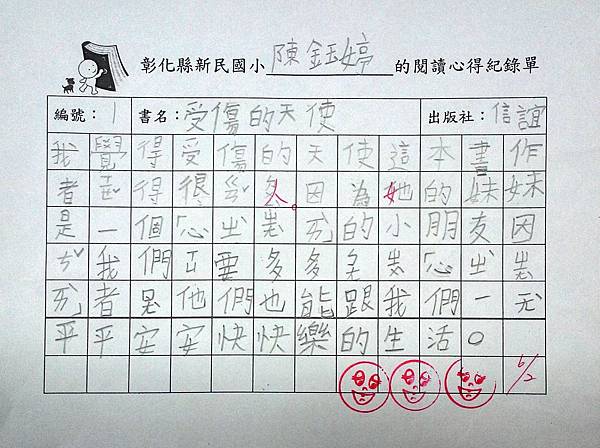 彰化縣新民國小 陳鈺婷 的閱讀心得紀錄單
編號：1 書名：受傷的天使 出版社：信誼
我覺得受傷的天使這本書作
者得很因為她的妹妹
是一個的小朋友因
我們要多多
者他們也能跟我們一
平平安安快快樂的生活。
6/2